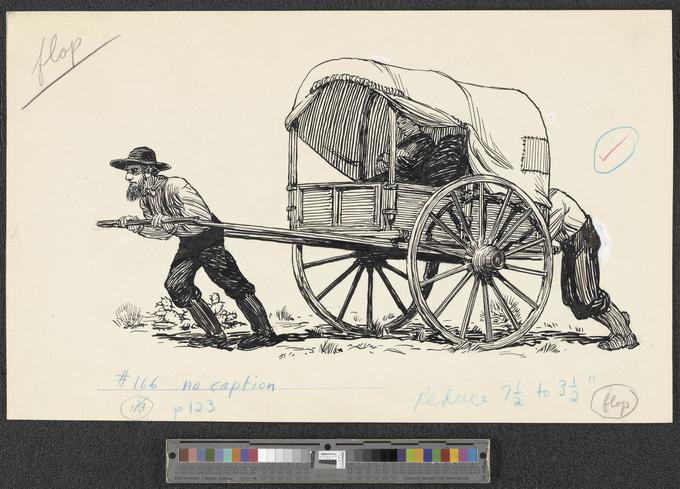 flop
#166 no caption
p123
Reduce 7 1/2 to 3 1/2"
flop